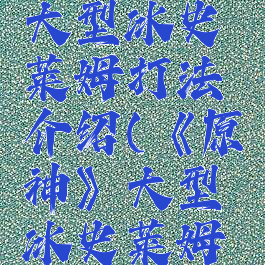 大型冰史
莱姆打法
介绍(《原
神》大型
冰史莱姆